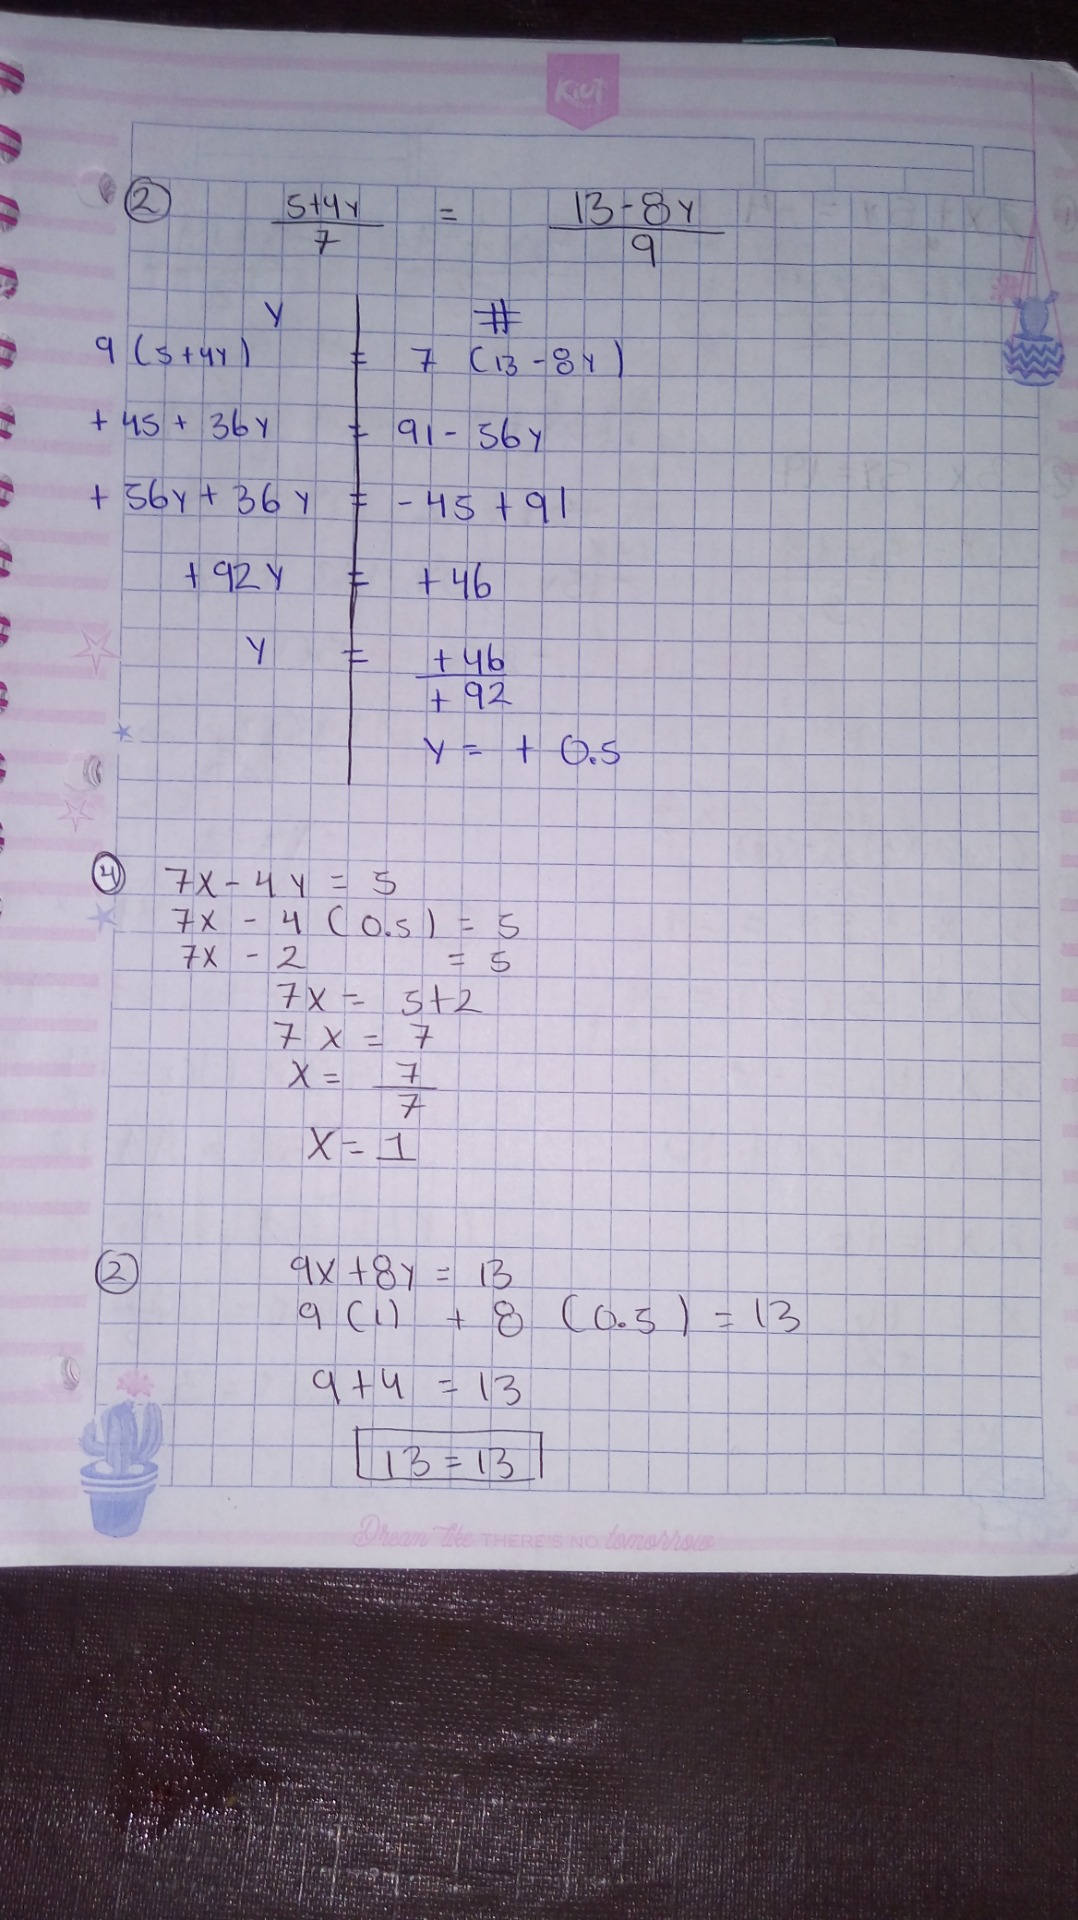 Kiut
② 5+4y = 13-8y
7 9
y #
9 (5+4y) = 7 (13-8y)
+45+36y = 91-56y
+56y+36y = -45+91
+92y = +46
y = +46
+92
y = + 0.5
④ 7x-4y = 5
7x - 4 (0.5) = 5
7x - 2 = 5
7x = 5+2
7x = 7
x = 7
7
x = 1
② 9x+8y = 13
9 (1) + 8 (0.5) = 13
9+4 = 13
13=13
Dream like THERE'S NO tomorrow